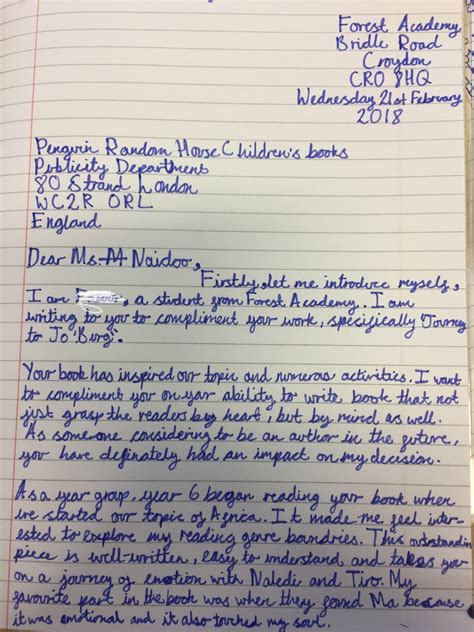 Forest Academy
Bridle Road
Croydon
CRO 8HQ
Wednesday 21st February
2018
Penguin Random House Children's books
Publicity Department
80 Strand London
WC2R ORL
England
Dear Ms. Naidoo,
Firstly, let me introduce myself,
I am , a student from Forest Academy. I am
writing to you to compliment your work, specifically 'Journey
to Jo'Burg'.
Your book has inspired our topic and numerous activities. I want
to compliment you on your ability to write book that not
just grasp the readers by heart, but by mind as well.
As someone considering to be an author in the future,
you have definately had an impact on my decision.
As a year group, year 6 began reading your book when
we started our topic of Africa. It made me feel inter-
ested to explore my reading genre boundries. This outstanding
piece is well-written, easy to understand and takes you
on a journey of emotion with Naledi and Tiro. My
favourite part in the book was when they found Ma because
it was emotional and it also torched my soul.